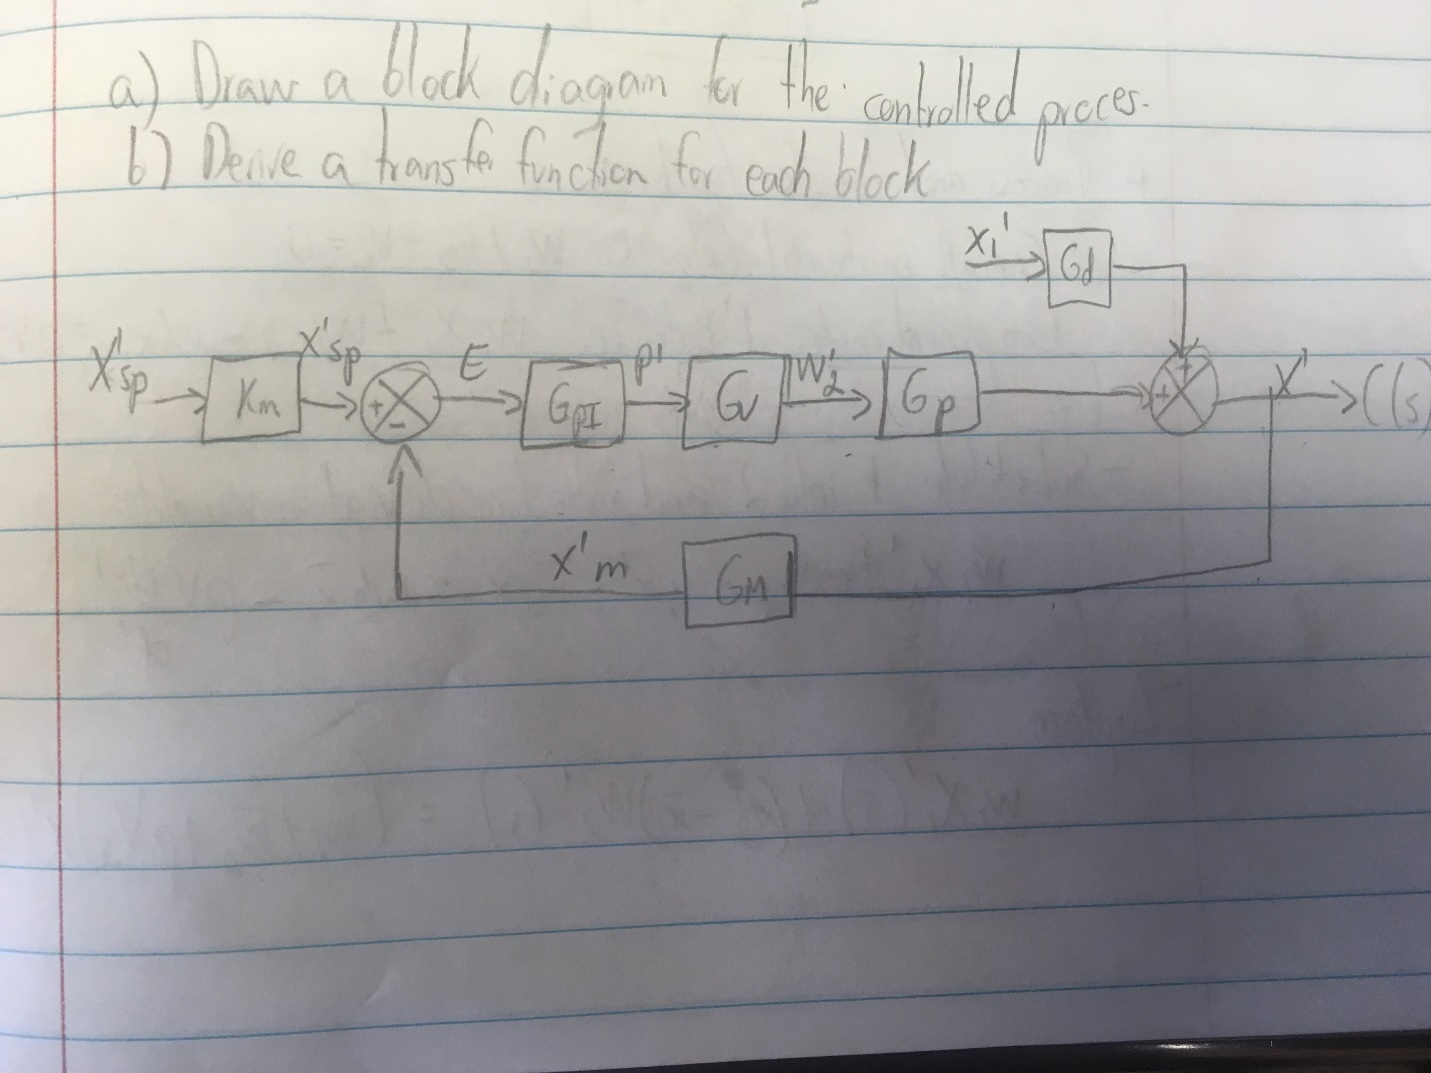 a) Draw a block diagram for the controlled proces.
b) Derive a transfer function for each block
X1' Gd
X'sp Km X'sp E GPI P' Gv W2' Gp X' C(s)
+ - + +
X'm GM